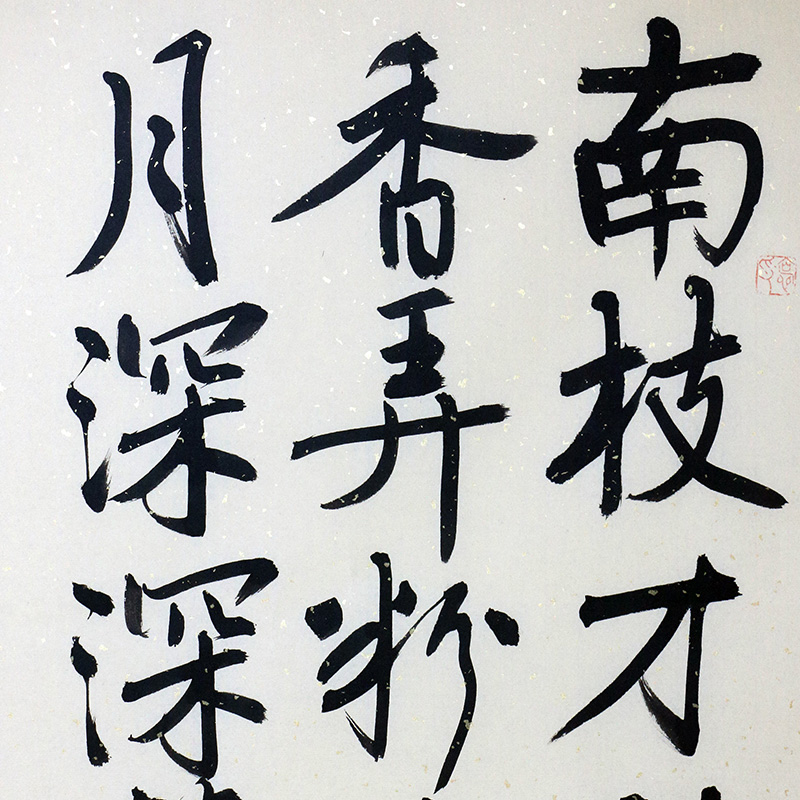 南枝才
香弄粉
月深深